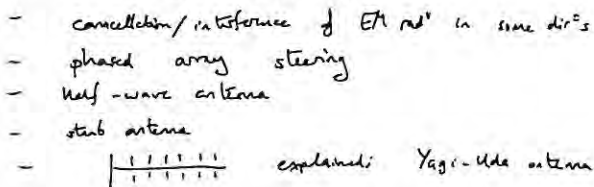 - cancellation/interference of EM radⁿ in some dirⁿs
- phased array steering
- half-wave antenna
- stub antenna
- explained: Yagi-Uda antenna